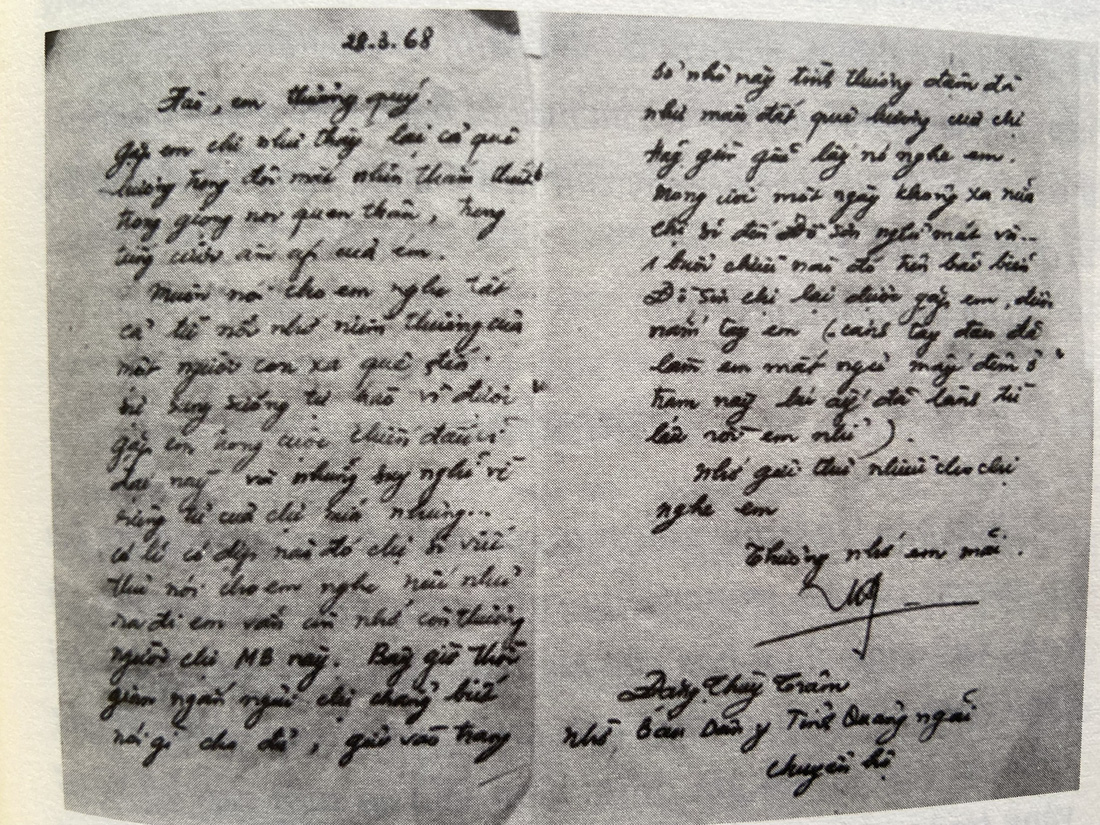 28.3.68
Tài, em thương quý.
Gặp em chị như thấy lại cả quê
hương trong đôi mắt nhìn thăm thẳm
trong giọng nói quen thân, trong
tiếng cười ấm áp của em.
Muốn nói cho em nghe tất
cả từ nỗi nhớ niềm thương của
một người con xa quê đến
sự sung sướng tự hào vì được
gặp em trong cuộc chiến đấu vĩ
đại này và những suy nghĩ về
riêng tư của chị nữa nhưng...
có lẽ có dịp nào đó chị sẽ viết
thư nói cho em nghe nếu như
ra đi em vẫn còn nhớ còn thương
người chị MB này. Bây giờ thời
gian ngắn ngủi chị chẳng biết
nói gì cho đủ, gửi vào trang
sổ nhỏ này tình thương đậm đà
như mảnh đất quê hương của chị
hãy gìn giữ lấy nó nghe em.
Mong ước một ngày không xa nữa
chị sẽ đến Đồ Sơn nghỉ mát và...
1 buổi chiều nào đó trên bãi biển
Đồ Sơn chị lại được gặp em, được
nắm tay em (cánh tay đau đã
làm em mất ngủ mấy đêm ở
trạm này lúc ấy đã lành từ
lâu rồi em nhỉ).
Nhớ gửi thư nhiều cho chị
nghe em
Thương nhớ em mãi.
Đặng Thuỳ Trâm
nhờ Ban Dân y Tỉnh Quảng ngãi
chuyển hộ